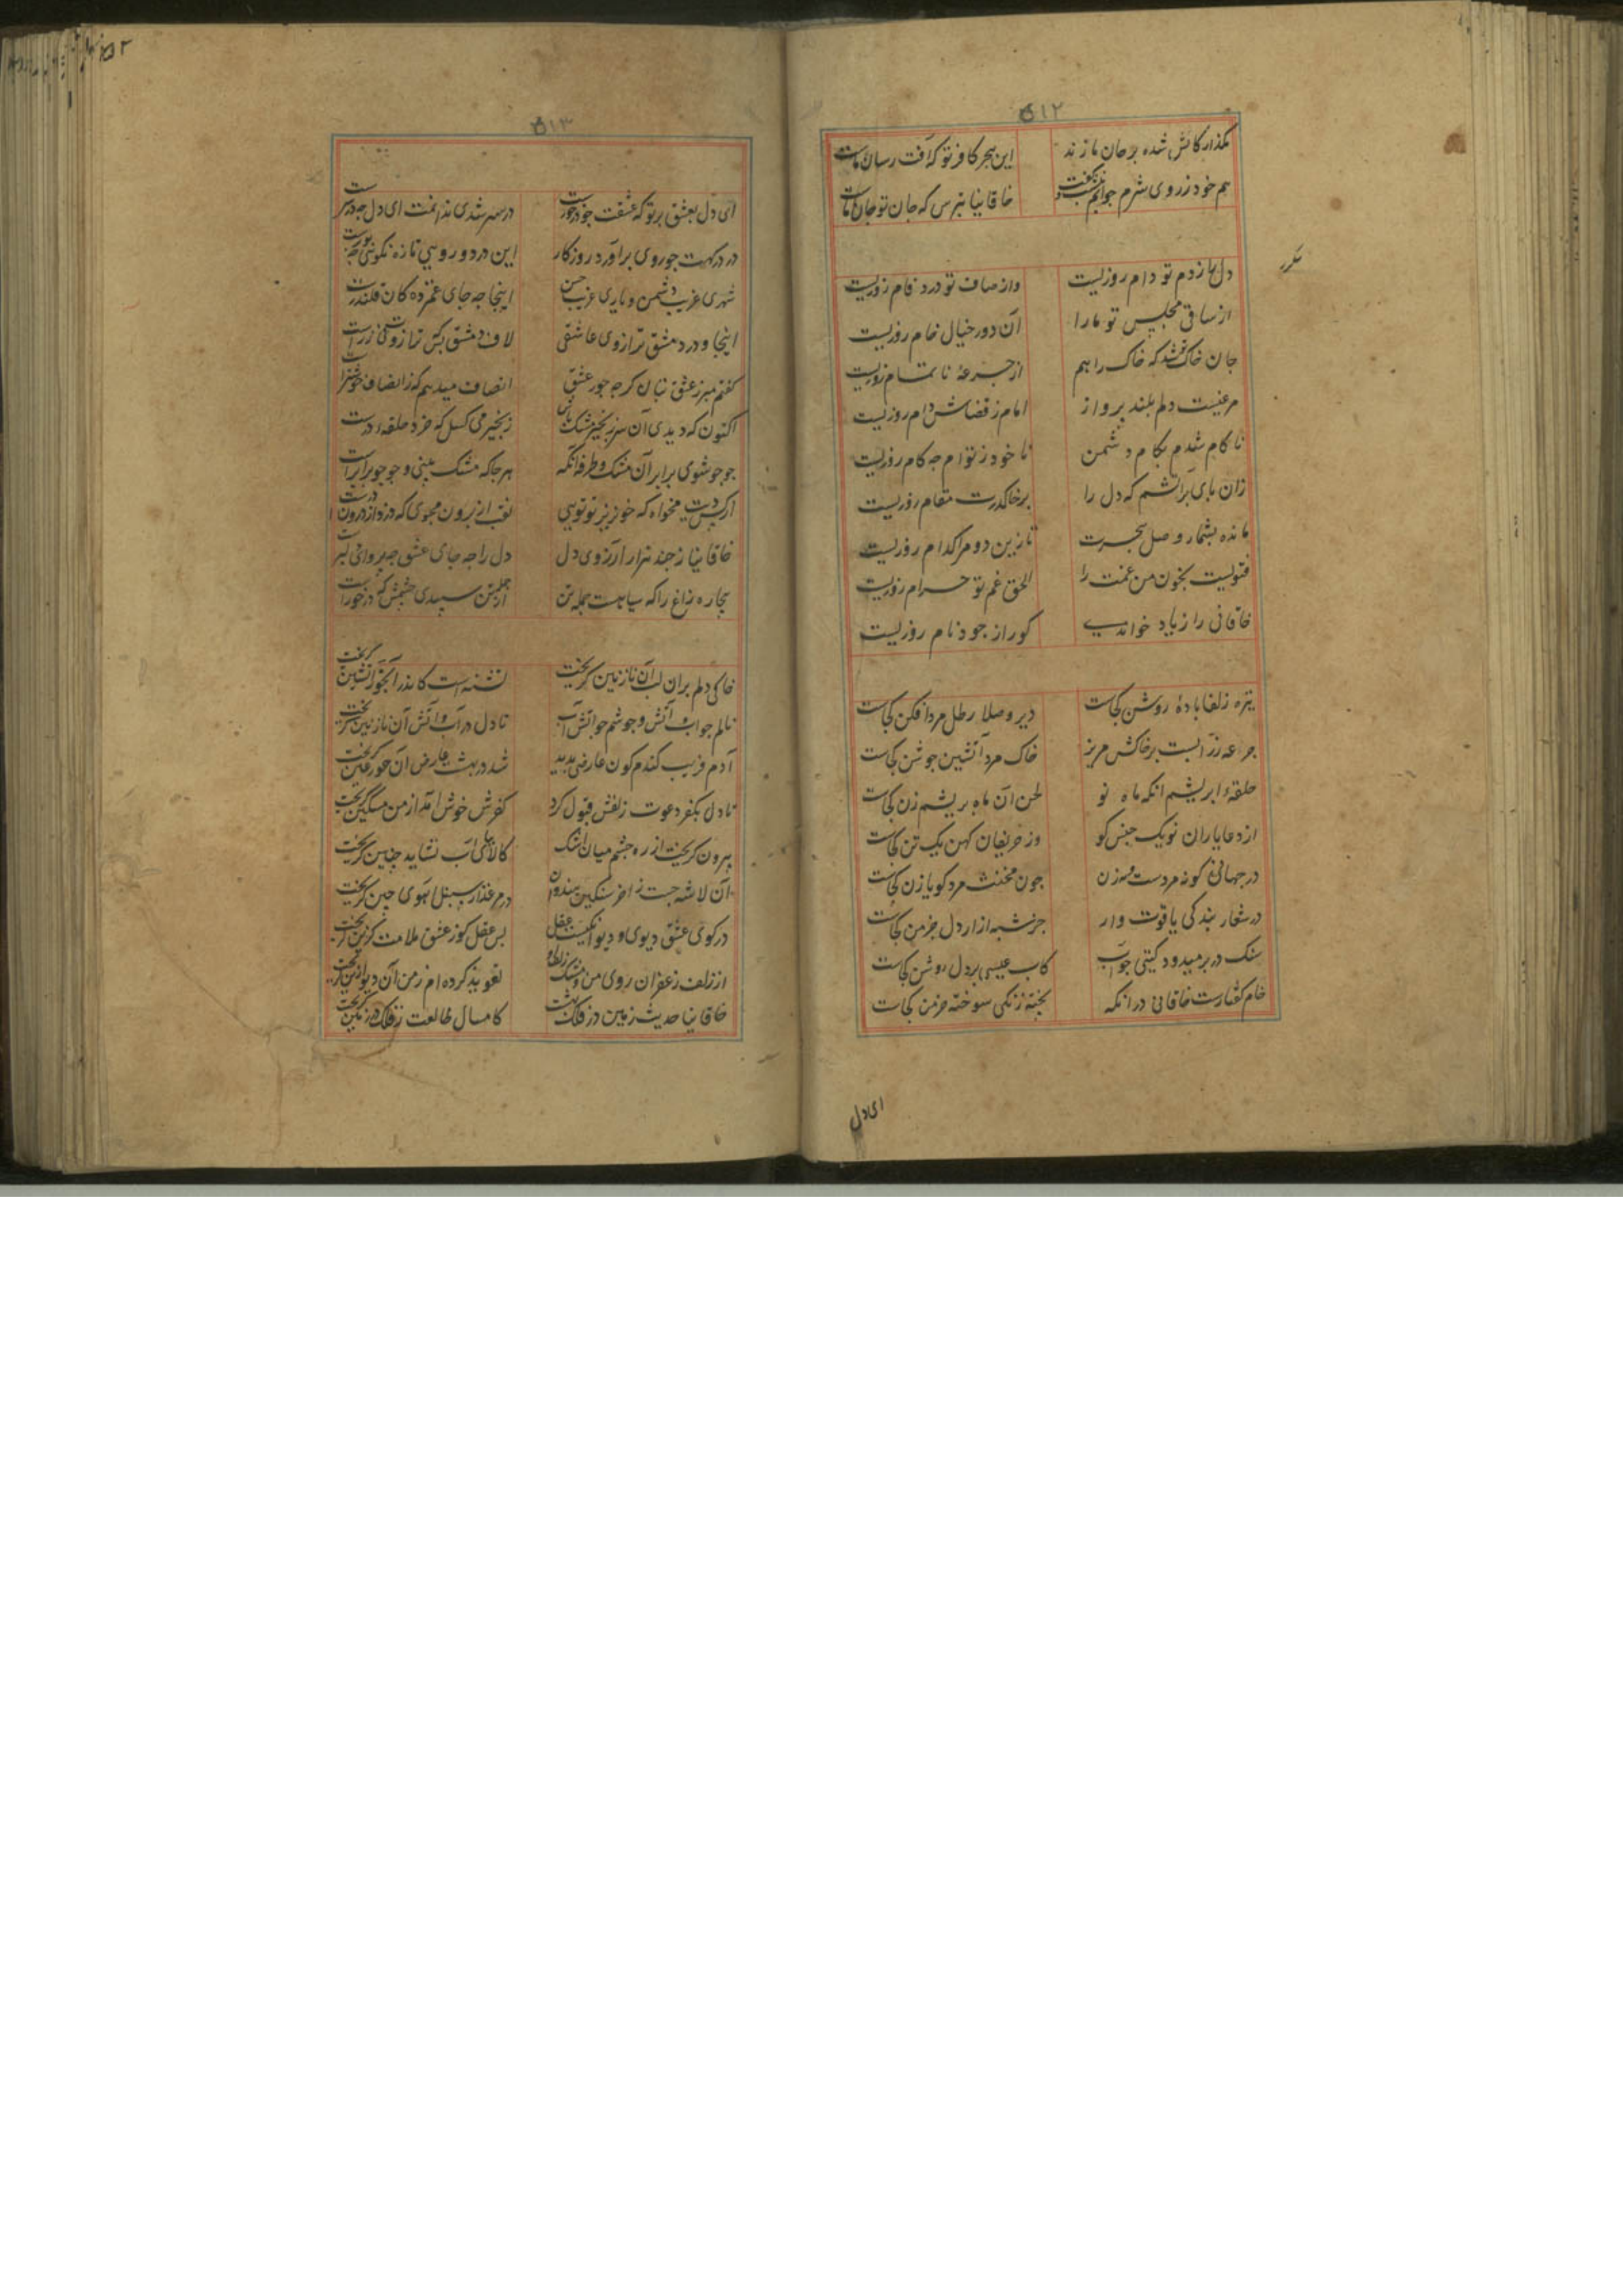 ۵۱۲
بکذار کاتش شده بر جان ما زند این هجر کافر تو که آفت رسان ماست
هم خود ز روی شرم جوابم نکفت خاقانیا نترس که جان تو جان ماست
مکرر
دل را ز دم تو دام روزیست وز صاف تو درد فام روزیست
از ساقی مجلس تو ما را آن دور خیال خام روزیست
جان خاک تو شد که خاک را هم از جرعهٔ ناتمام روزیست
مرغیست دلم بلند پرواز اما ز قضاش دام روزیست
ناکام شدم بکام دشمن تا خود ز توام چه کام روزیست
زان پای بر آتشم که دل را بر خاک درت مقام روزیست
مانده بشمار وصل هجرت تا زین دو مرا کدام روزیست
فتویست بخون من غمت را الحق غم تو حرام روزیست
خاقانی را زیاد خواندی کو را ز جود نام روزیست
تیره زلفا بادهٔ روشن کجاست دیر وصلا رطل مردافکن کجاست
جرعه زر آبست بر خاکش مریز خاک مرد آتشین جوشن کجاست
حلقهٔ ابریشم انکه ماه نو لحن آن ماه بریشم زن کجاست
از دعا یاران نو یک جنس کو وز حریفان کهن یک تن کجاست
در جهانی کو نه مردست و نه زن جون مخنث مرد کو یا زن کجاست
در شعار بندکی یاقوت وار جز شبه ازار دل خرمن کجاست
سنک در بر میدود کیتی جو آب کاب عیسی بر دل روشن کجاست
خام کفتارست خاقانی در انکه پخته زنکی سوخته خرمن کجاست
ای دل
۵۱۳
ای دل بعشق بر تو که عشقت چه درخورست در سر شدی ندانمت ای دل چه در سرست
در درکهت جو روی برآورد روزکار این درد و روی تازه نکوئی چه
شهری غریب دشمن و یاری غریب حسن اینجا چه جای غمزده کان قلندرست
اینجا و در دمشق ترازوی عاشقی لاف دمشق بس که ترازوی زرست
کفتم مبر ز عشق نبان کرچه جور عشق انصاف میدهم که ز انصاف خوشترست
اکنون که دیدی آن سر زنجیر مشک پاش زنجیر می کسل که خرد حلقه بر درست
جو جو شوی برابر آن مشک و طرفه آنکه هرجا که مشک بینی و جو جو برابرست
از کس دیت مخواه که خونریز تو توئی نقب از برون مجوی که دزد از درون درست
خاقانیا ز چند هزار آرزوی دل دل را چه جای عشق و چه پروای دلبرست
بیچاره زاغ را که سیاهست جمله تن از جمله تن سپیدی چشمش که درخورست
خاکی دلم بران لب آن نازنین کریخت تشنه ست کاندر آبخور آتشین کریخت
نالم جو آب و آتش و جوشم جو آتش آب تا دل در آب و آتش آن نازنین کریخت
آدم فریب کندم کون عارضی بدید شد در بهشت عارض آن حور عین کریخت
تا دل بکفر دعوت زلفش قبول کرد کفرش خوش آمد از من مسکین کریخت
بیرون کریخت از ره چشم میان اشک کالا بی آب نشاید جنین کریخت
آن لاشه جست ز آخر سنکین هندوان در مرغزار سنبل آهوی جین کریخت
در کوی عشق دیوی و دیوانکیست عقل بس عقل کو ز عشق ملامت کزین کریخت
از زلف زعفران روی من تعویذ کرده ام ز من آن دیو ازین کریخت
خاقانیا حدیث زمین در فلک نهشت کامسال طالعت ز فلک در زمین کریخت